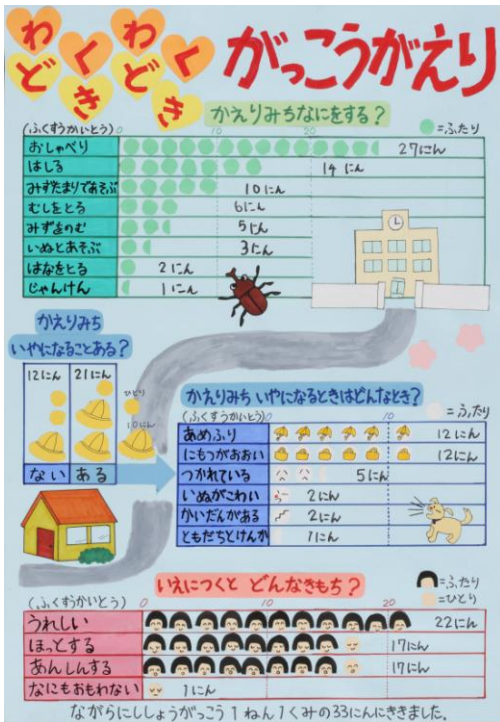 わくわく
どきどき
がっこうがえり
かえりみちなにをする?
(ふくすうかいとう) 0 10 20 =ふたり
おしゃべり 27にん
はしる 14にん
みずたまりであそぶ 10にん
むしをとる 6にん
みずをのむ 5にん
いぬとあそぶ 3にん
はなをとる 2にん
じゃんけん 1にん
かえりみち
いやになることある?
12にん 21にん
ひとり
10にん
ない ある
かえりみち いやになるときはどんなとき?
(ふくすうかいとう) 0 10 =ふたり
あめふり 12にん
にもつがおおい 12にん
つかれている 5にん
いぬがこわい 2にん
かいだんがある 2にん
ともだちとけんか 1にん
いえにつくと どんなきもち?
=ふたり
=ひとり
(ふくすうかいとう) 0 10 20
うれしい 22にん
ほっとする 17にん
あんしんする 17にん
なにもおもわない 1にん
ながらにししょうがっこう1ねん1くみの33にんにききました。